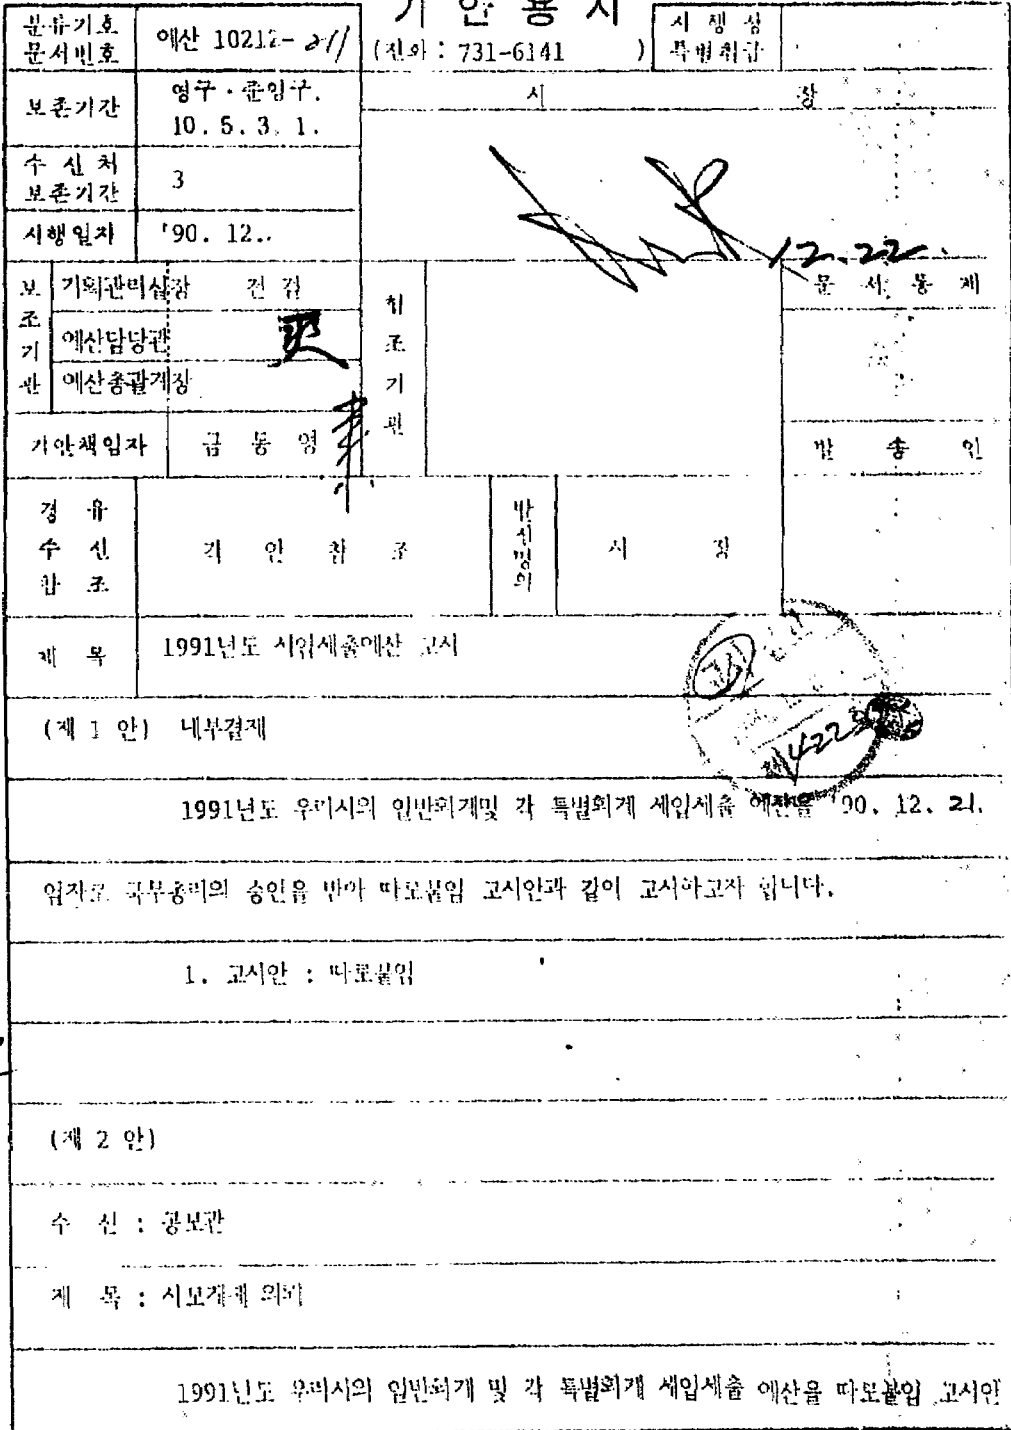 기 안 용 지
분류기호
문서번호
예산 10212-211
(전화 : 731-6141 )
시 행 상
특별취급
보존기간
영구 · 준영구.
10. 5. 3. 1.
시 장
수 신 처
보존기간
3
시행일자
'90. 12..
12.22.
보조기관
기획관리실장 전결
예산담당관
예산총괄계장
협조기관
문 서 통 제
기안책임자
금 동 영
발 송 인
경 유
수 신
참 조
각 안 참 조
발신명의
시 장
제 목
1991년도 세입세출예산 고시
(제 1 안) 내부결재
1991년도 우리시의 일반회계및 각 특별회계 세입세출 예산을 '90. 12. 21.
일자로 국무총리의 승인을 받아 따로붙임 고시안과 같이 고시하고자 합니다.
1. 고시안 : 따로붙임
(제 2 안)
수 신 : 공보관
제 목 : 시보게재 의뢰
1991년도 우리시의 일반회계 및 각 특별회계 세입세출 예산을 따로붙임 고시안